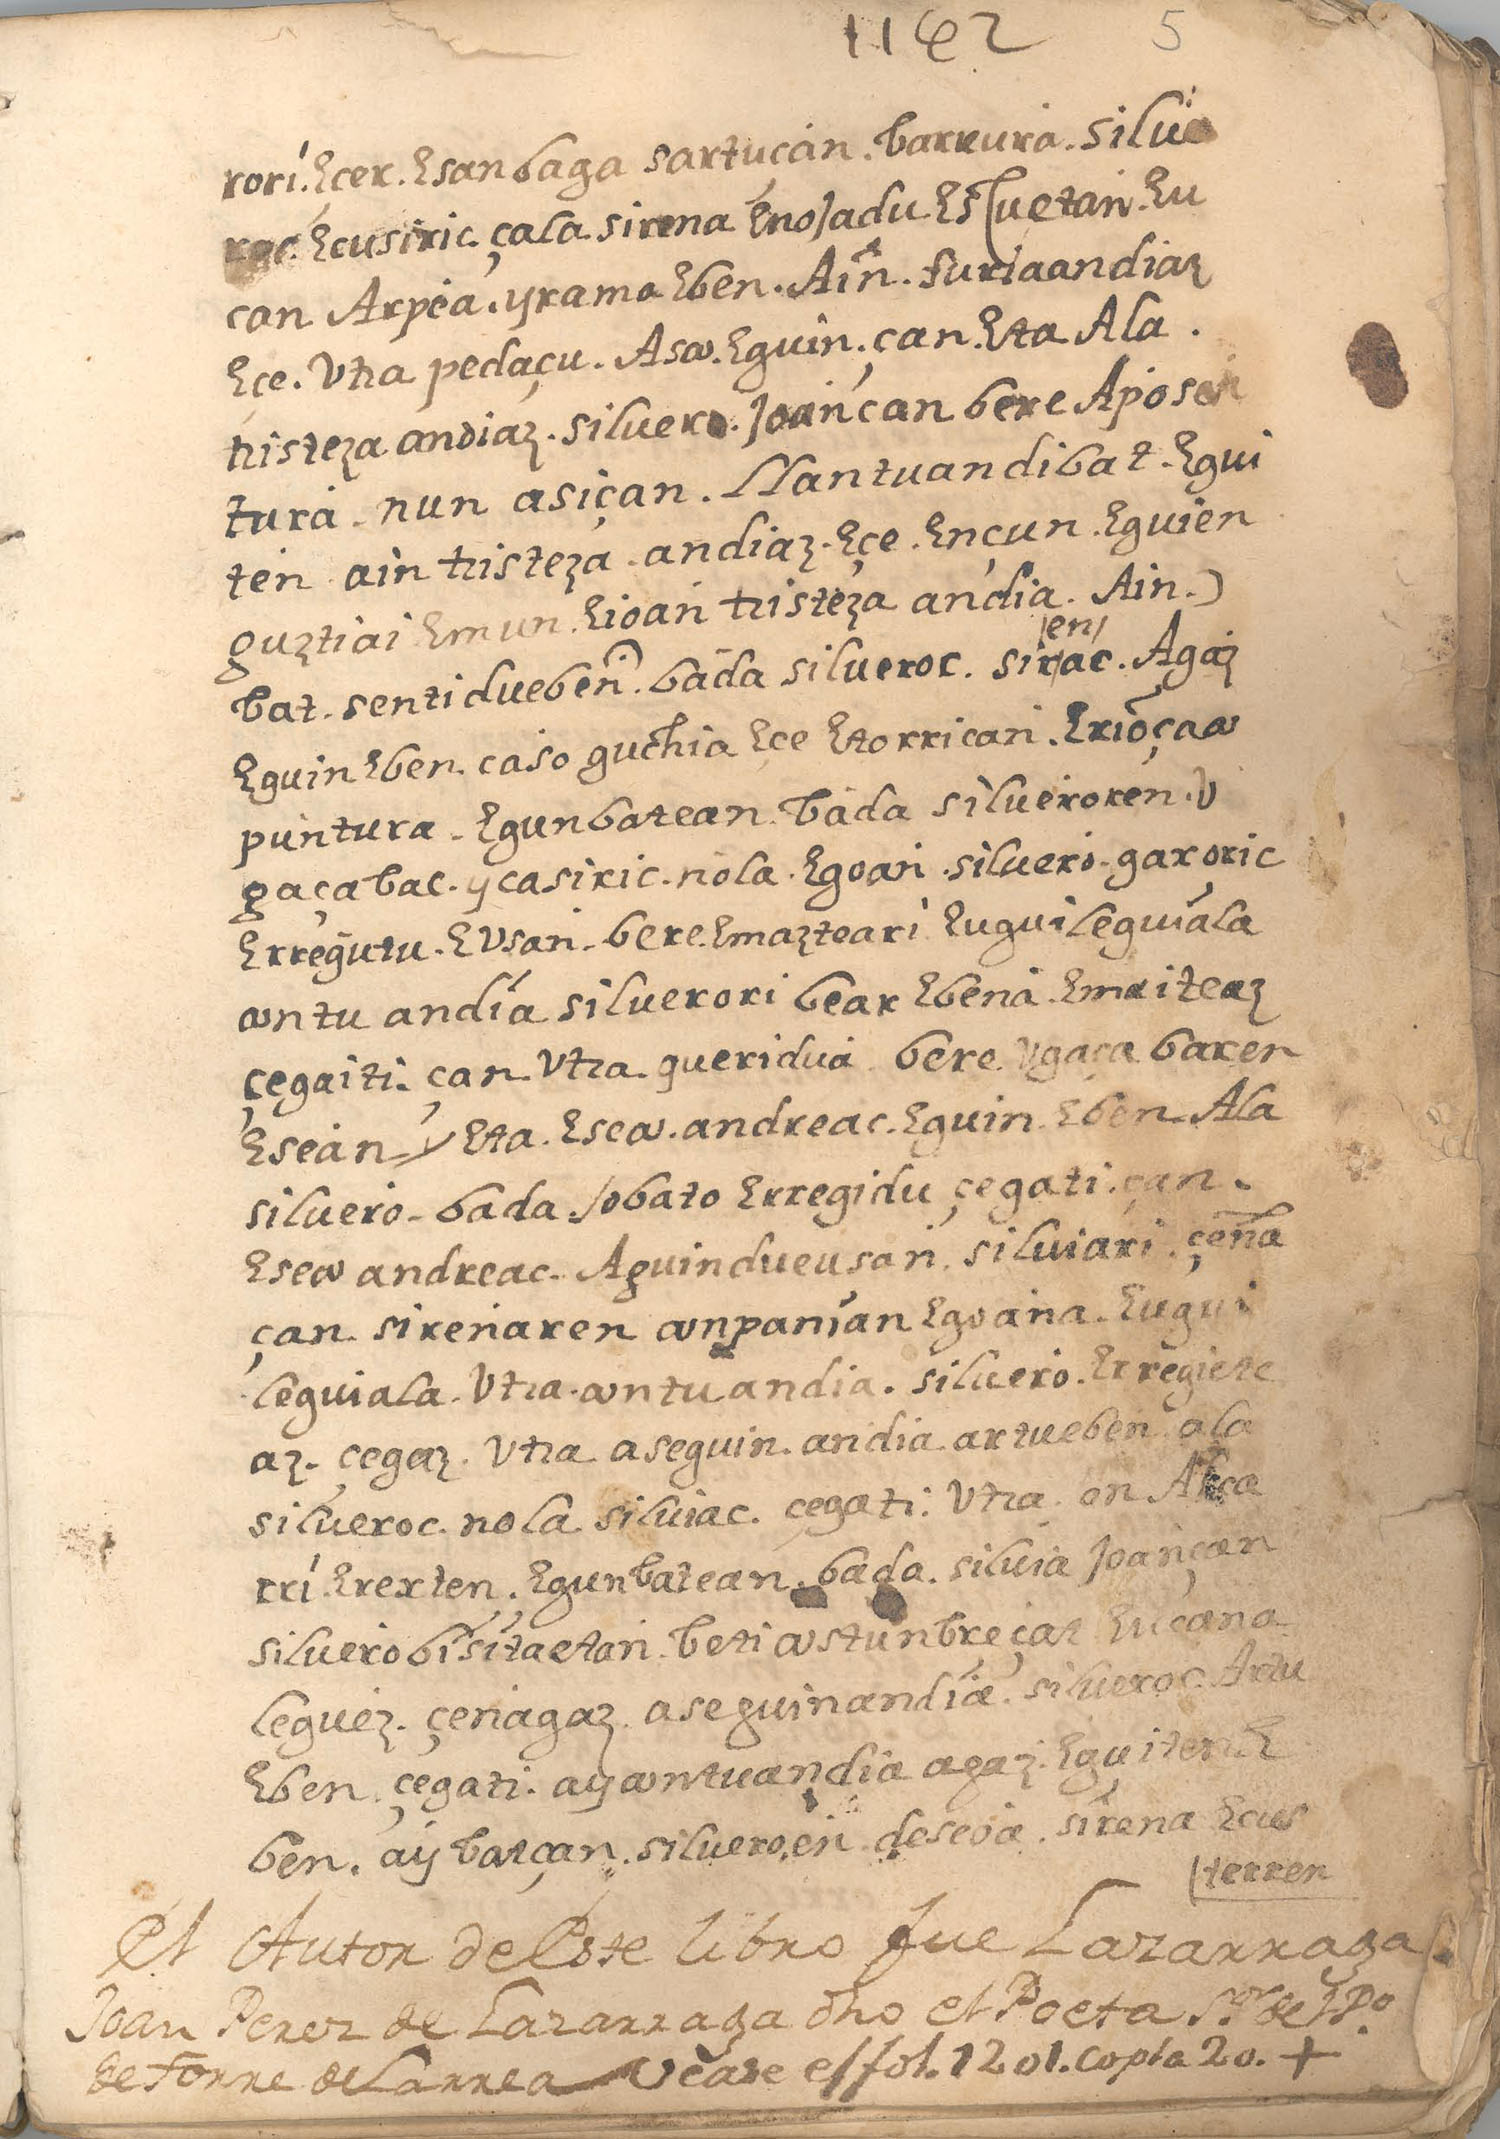 1142 5
rori. Ecer. Esanbaga sartuçan. barrura. silue
roc. Ecusiric. çala. sirena Enojadu Es(uetan. Eu
can Arpea. yrama Eben. Ain. furiaandiaz
Eçe. Vtra pedaçu. Asco. Eguin. çan. Eta Ala.
tristeza andiaz. siluero. Joan çan bere Aposen
tura. nun asiçan. LLantuandibat. Egui
ten ain tristeza. andiaz. Eçe. Ençun. Eguien
guztiai Emun. Eioan tristeza andia. Ain.)
bat. sentidueben. bada silueroc. sirac. Agaz
/en/
Eguin Eben. caso guchia Ece Etorrican. Erioçaco
puntura. Egunbatean. bada silueroren. V
gaçabac. ycasiric. nola. Egoan. siluero. gaxoric
Erregutu. EVsan. bere. Emazteari Euguileguiala
contu andia siluerori bear Ebena. Emaiteaz
çegaiti. çan. Vtra. queridua bere. Vgaça baren
Esean y Eta. Eseco. andreac. Eguin. Eben. Ala
siluero. bada. Jobato Erregidu çegati. çan.
Eseco andreac. Aguindueusan. siluiari. çena
çan. sirenaren conpanian Egoana. Eugui
leguiala. Vtra. contuandia. siluero. Erregiete
az. çegaz. Vtra aseguin. andia. artueben ala
silueroc. nola siluiac. cegati. Vtra. on
rri Erexten. Egunbatean. bada. siluia Joançan
siluero bisitaetan. beti costunbreçat Euçana
leguez. çenagaz. aseguinandia. silueroc. Artu
Eben. çegati. aycontuandia agaz. Eguiten. E
ben. ay batçan. siluero.en deseoa. sirena Ecus
/terren
El Autor de Este libro fue Lazarraga
Joan Perez de Lazarraga dho el Poeta Sor de
de Torre de Larrea Vease el fol. 1201. copla 20. +